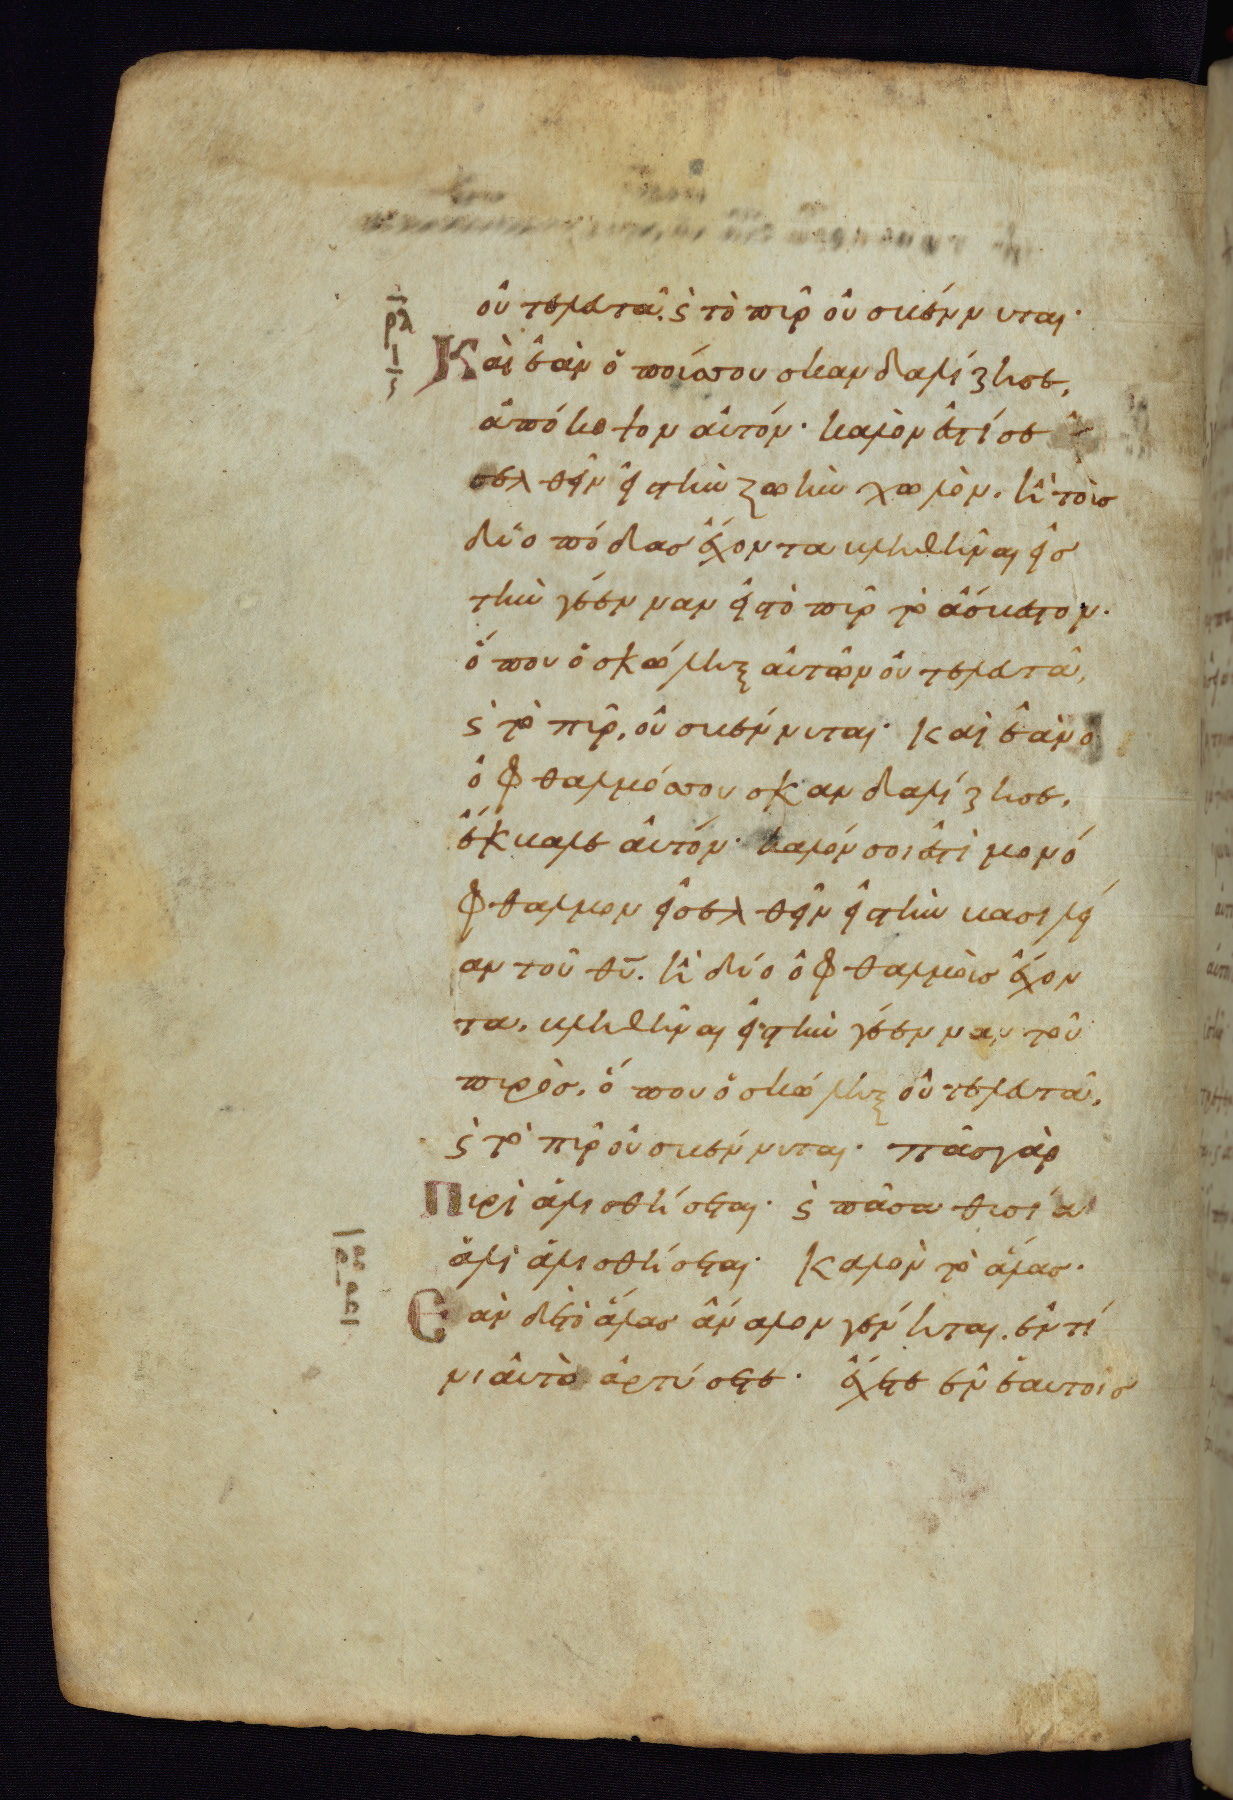 οὐ τελευτᾶ. ϛ̀ τὸ πῦρ οὐ σβέννυται·
ρλ
Καὶ ἐὰν ὁ πούσσου σκανδαλίζησε,
ϛ
ἀπόκοψον αὐτόν· καλὸν ἐστί σε
σελθεῖν εἰς τὴν ζωὴν χωλὸν. ἢ τοὺς
δύο πόδας ἔχοντα βληθῆναι εἰς
τὴν γέενναν εἰς τὸ πῦρ τὸ ἄσβεστον.
ὅπου ὁ σκώληξ αὐτῶν οὐ τελευτᾶ,
ϛ̀ τὸ πῦρ, οὐ σβέννυται· Καὶ ἐὰν ὁ
ὀφθαλμόσσου σκανδαλίζησε,
ἔκβαλε αὐτόν· καλόν σοι ἐστὶ μονό
φθαλμον εἰσελθεῖν εἰς τὴν βασιλεί
αν τοῦ θυ̅. ἢ δύο ὀφθαλμοὺς ἔχον
τα, βληθῆναι εἰς τὴν γέενναν τοῦ
πυρὸς, ὅπου ὁ σκώληξ οὐ τελευτᾶ,
ϛ̀ τὸ πῦρ οὐ σβέννυται· πᾶς γὰρ
Πυρὶ ἁλισθήσεται· ϛ̀ πᾶσα θυσία
ἁλὶ ἁλισθήσεται· Καλὸν τὸ ἅλας·
Ἐὰν δὲ τὸ ἅλας ἄναλον γένηται. ἐν τί
νι αὐτὸ ἀρτύσετε· ἔχετε ἐν ἑαυτοῖς